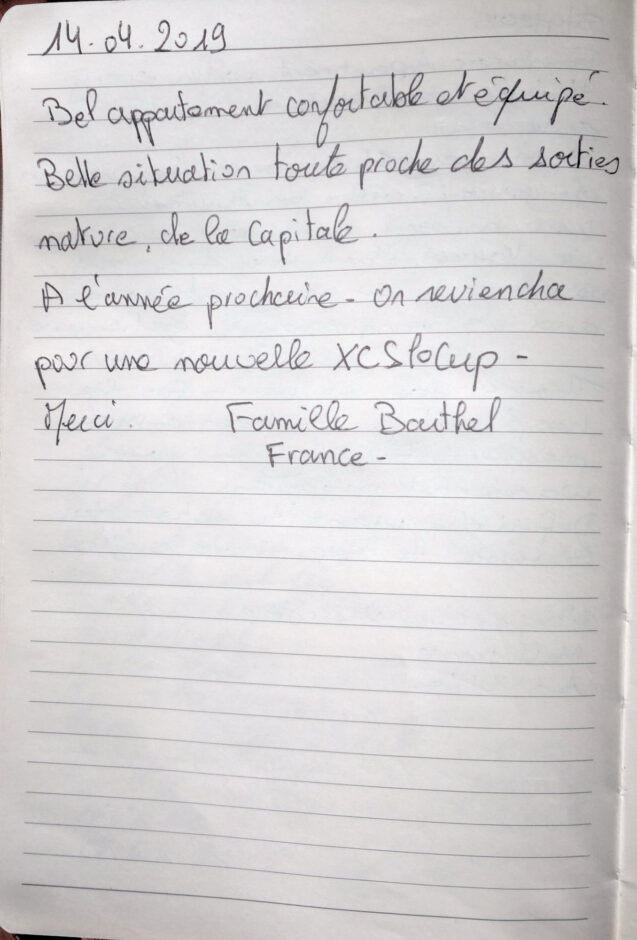 14.04.2019
Bel appartement confortable et équipé.
Belle situation toute proche des sorties
nature, de la Capitale.
A l'année prochaine - On reviendra
pour une nouvelle XCSloCup -
Merci. Famille Barthel
France -